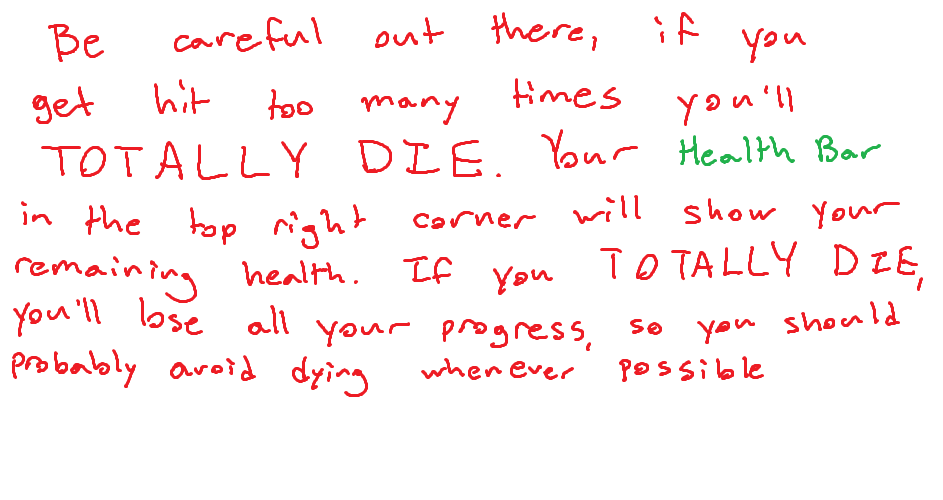 Be careful out there, if you
get hit too many times you'll
TOTALLY DIE. Your Health Bar
in the top right corner will show your
remaining health. If you TOTALLY DIE,
you'll lose all your progress, so you should
probably avoid dying whenever possible